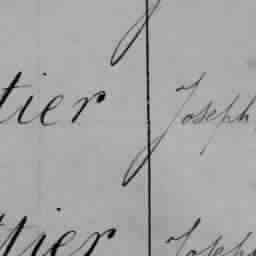 tier Joseph
tier Joseph